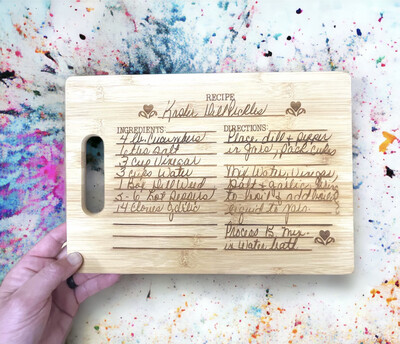 RECIPE
Kosher Dill Pickles
INGREDIENTS
4 lb. Cucumbers
1 Cup Salt
3 Cup Vinegar
3 Cups Water
1 Dill Weed
5-6 Hot Peppers
14 Cloves Garlic
DIRECTIONS:
Place dill & Pepper
in Jars, Pack Cukes
Mix Water, Vinegar
Salt & garlic, bring
to boil & add
liquid to jars
Process 15 min
in Water bath